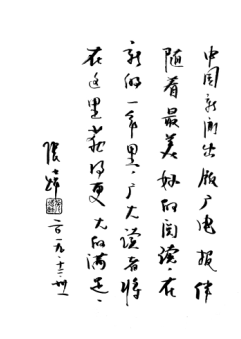 中国新闻出版广电报伴
随着最美妙的阅读，在
新的一年里，广大读者将
在这里获得更大的满足。
张炜
二〇一九.十二.卅